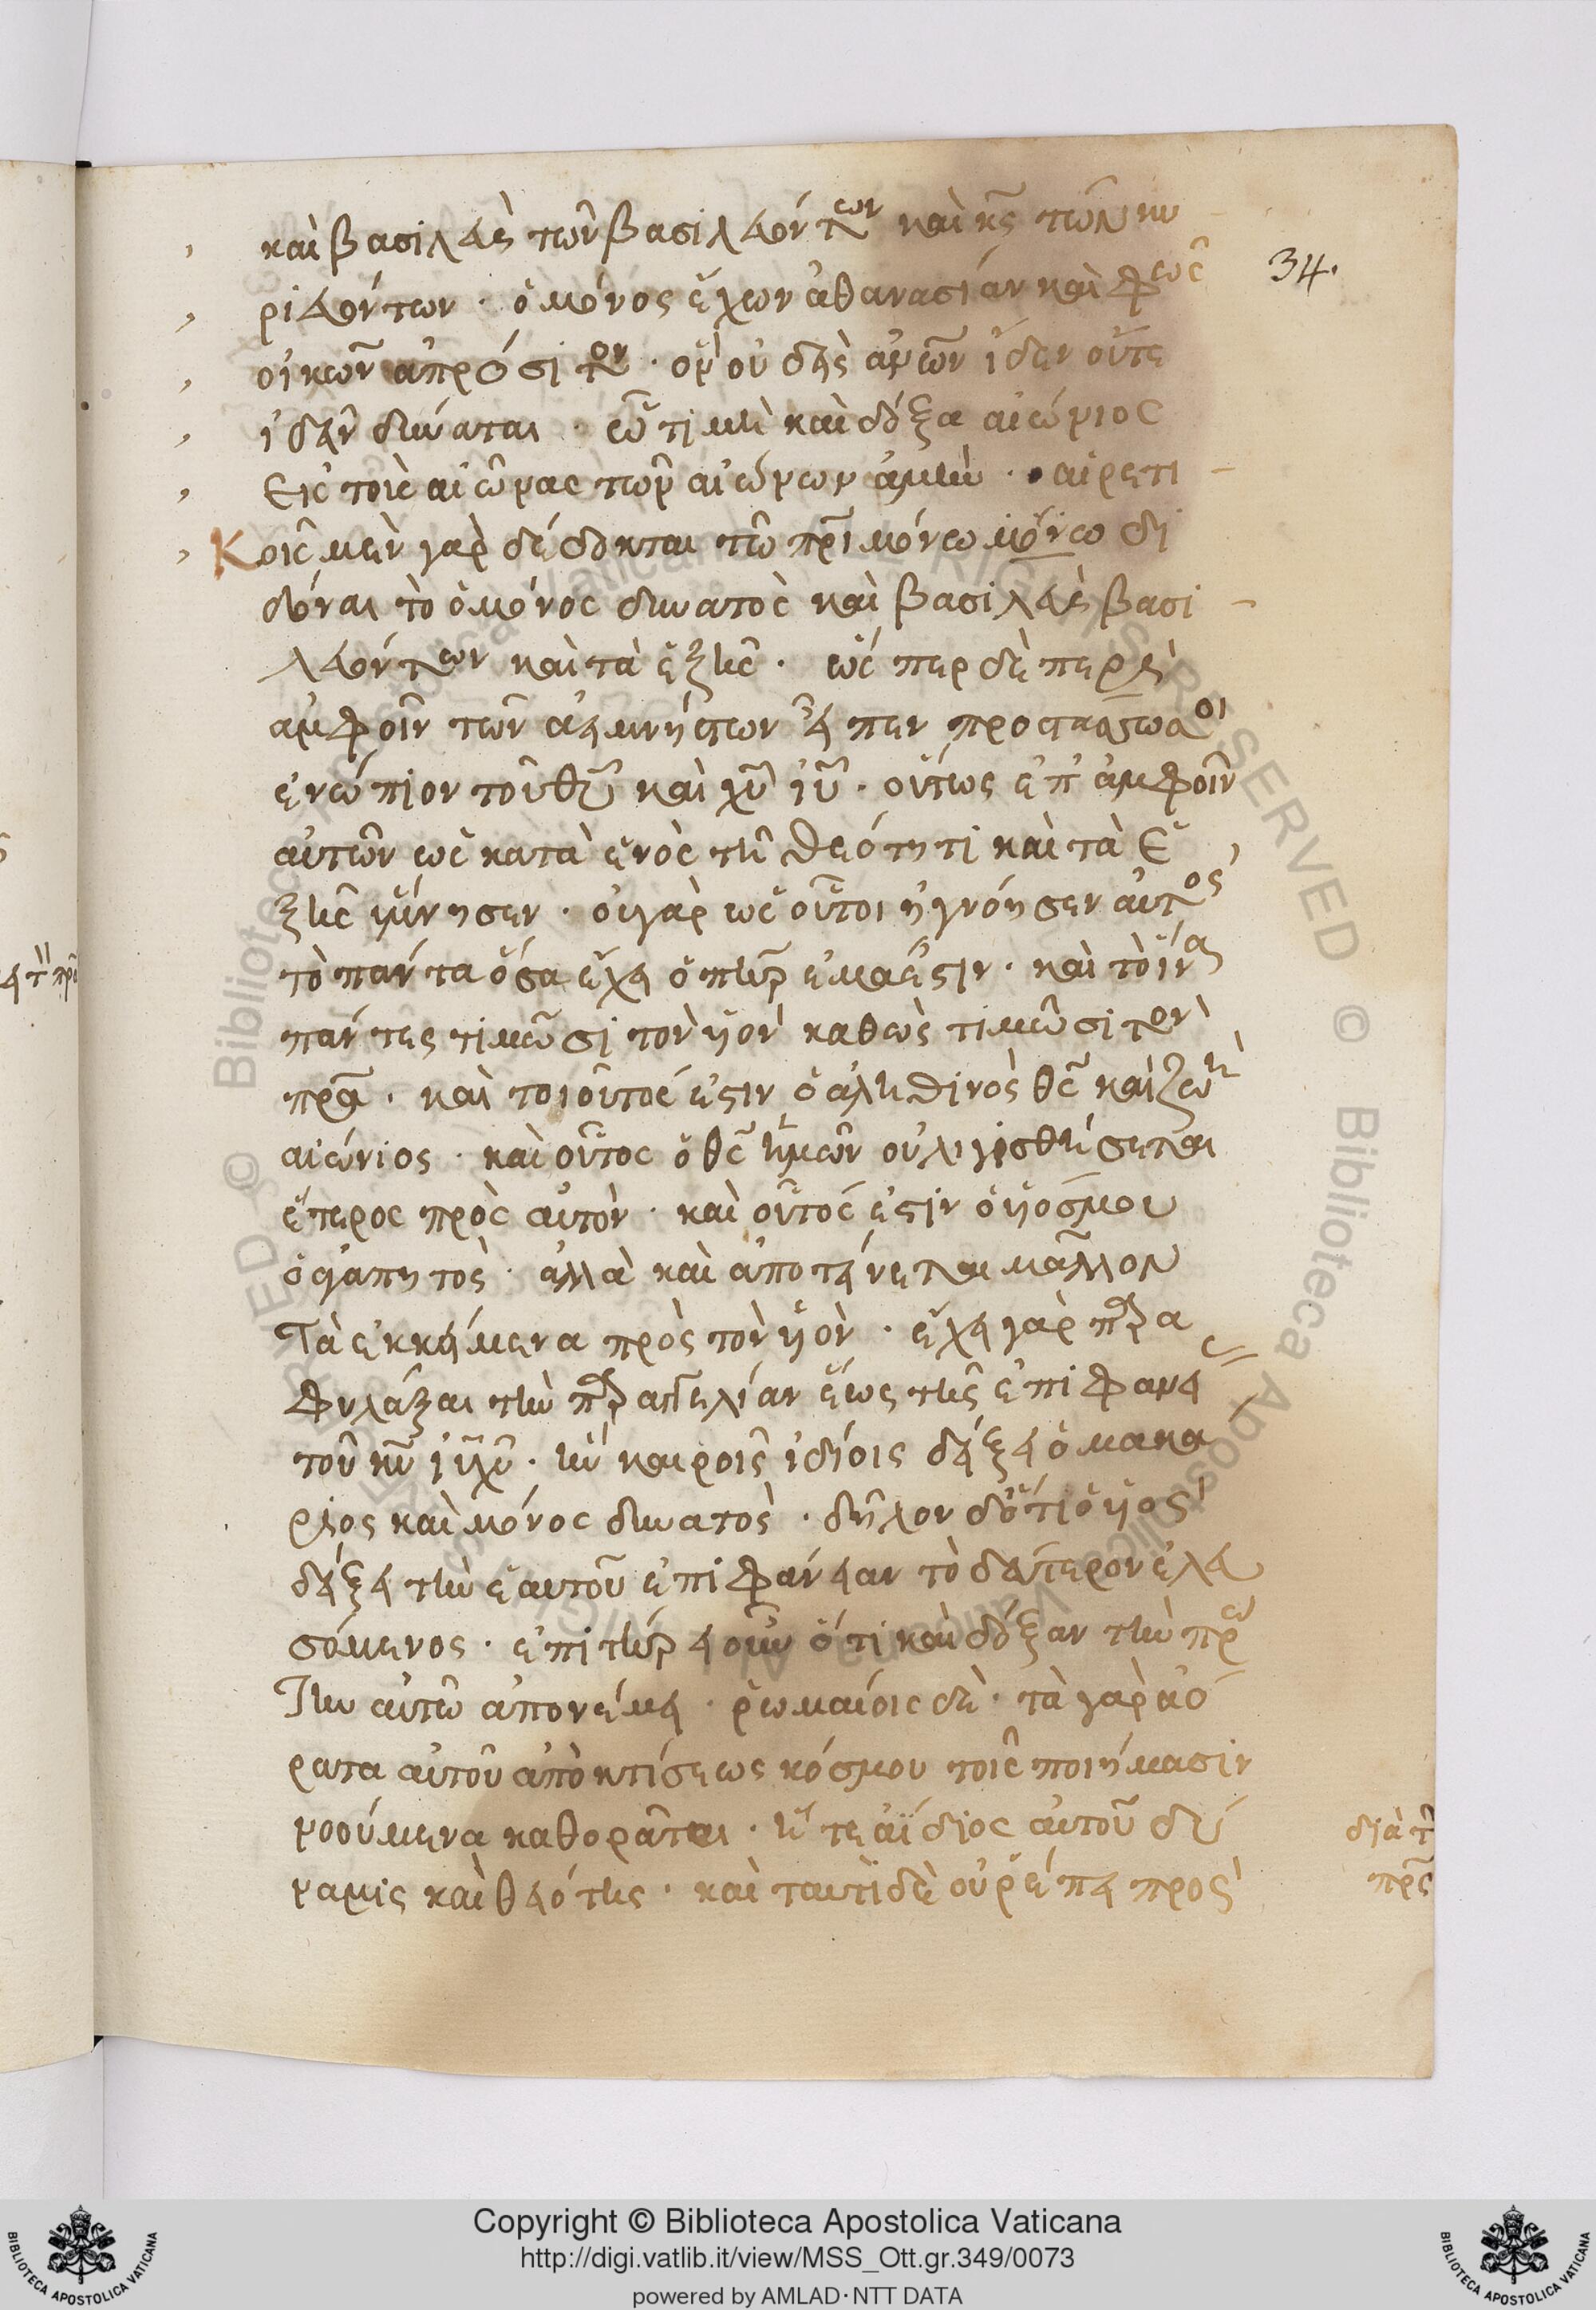 καὶ βασιλεὺς τῶν βασιλευόντων καὶ κς τῶν κυ
34.
ριευόντων · ὁ μόνος ἔχων ἀθανασίαν καὶ φῶς
οἰκῶν ἀπρόσιτον · ὃν οὐδεὶς ἀνων ἴδεν οὔτε
ἰδεῖν δύναται · ὧ τιμὴ καὶ δόξα αἰώνιος
εἰς τοὺς αἰῶνας τῶν αἰώνων ἀμήν · αἱρετι
κοῖς μὲν γὰρ δέδοκται τῶ πρι μόνω μόνω δι
δόναι τὸ ὁ μόνος δυνατὸς καὶ βασιλεὺς βασι
λευόντων καὶ τὰ ἑξῆς · ὥσπερ δὲ περὶ
ἀμφοῖν τῶν ἀειμνήστων εἶπεν
ἐνώπιον τοῦ θυ καὶ χυ ιυ · οὕτως ἐπ' ἀμφοῖν
αὐτῶν ὡς κατὰ ἑνὸς τῆ θεότητι καὶ τὰ ἑ
ξῆς ὕμνησεν · οὐ γὰρ ὡς οὗτοι ἠγνόησεν αὐτὸς
τὸ πάντα ὅσα ἔχει ὁ πηρ ἐμά ἐστιν · καὶ τὸ ἵνα
πάντες τιμῶσι τὸν υἱὸν καθὼς τιμῶσι τὸν
πρα · καὶ τοιοῦτός ἐστιν ὁ ἀληθινὸς θς καὶ ζωὴ
αἰώνιος · καὶ οὗτος ὁ θς ἡμῶν οὐ λογισθήσεται
ἕτερος πρὸς αὐτόν · καὶ οὗτός ἐστιν ὁ υἱός μου
ὁ ἀγαπητὸς · ἀλλὰ καὶ ἀποτείνεται μᾶλλον
τὰ ἐκκείμενα πρὸς τὸν υἱὸν · ἔχει γὰρ παρα
φυλάξαι τὴν παραγγελίαν ἕως τῆς ἐπιφανεί
τοῦ κυ ιυ χυ · ἣν καιροῖς ἰδίοις δείξει ὁ μακα
ριος καὶ μόνος δυνατὸς · δῆλον δ' ὅτι ὁ υἱὸς
δείξει τὴν ἑαυτοῦ ἐπιφάνειαν τὸ δεύτερον ἐλευ
σόμενος · ἐπιτήρει οὖν ὅτι καὶ δόξαν τὴν πρω
την αὐτῶ ἀπονέμει · ῥωμαίοις δὲ · τὰ γὰρ ἀό
ρατα αὐτοῦ ἀπὸ κτίσεως κόσμου τοῖς ποιήμασιν
νοούμενα καθορᾶται · ἥ τε ἀΐδιος αὐτοῦ δύ
ναμις καὶ θειότης · καὶ ταυτὶ δὲ οὐκ εἴπε πρὸς
διὰ τ
πρς
Copyright © Biblioteca Apostolica Vaticana
http://digi.vatlib.it/view/MSS_Ott.gr.349/0073
powered by AMLAD·NTT DATA